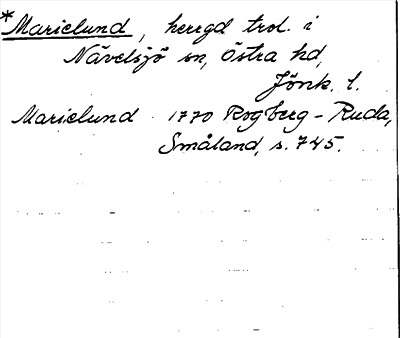 *Marielund, herrgd trol. i
Nävelsjö sn, Östra hd,
Jönk. l.
Marielund 1770 Rogberg - Ruda,
Småland, s. 745.